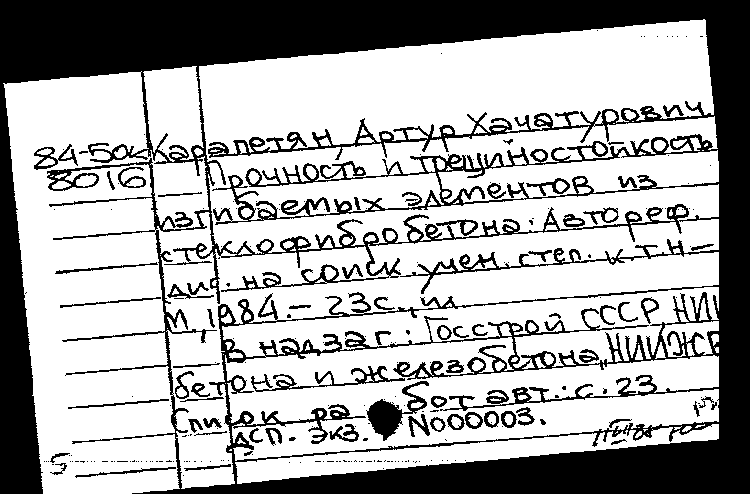 84-50к Карапетян, Артур Хачатурович.
8016 Прочность и трещиностойкость
изгибаемых элементов из
стеклофибробетона: Автореф.
дис. на соиск. учен. степ. к.т.н.—
М., 1984.— 23 с., ил
В надзаг.: Госстрой СССР, НИИ
бетона и железобетона, "НИИЖБ
Список ра бот авт.: с. 23.
ДСП. экз. N000003.
5